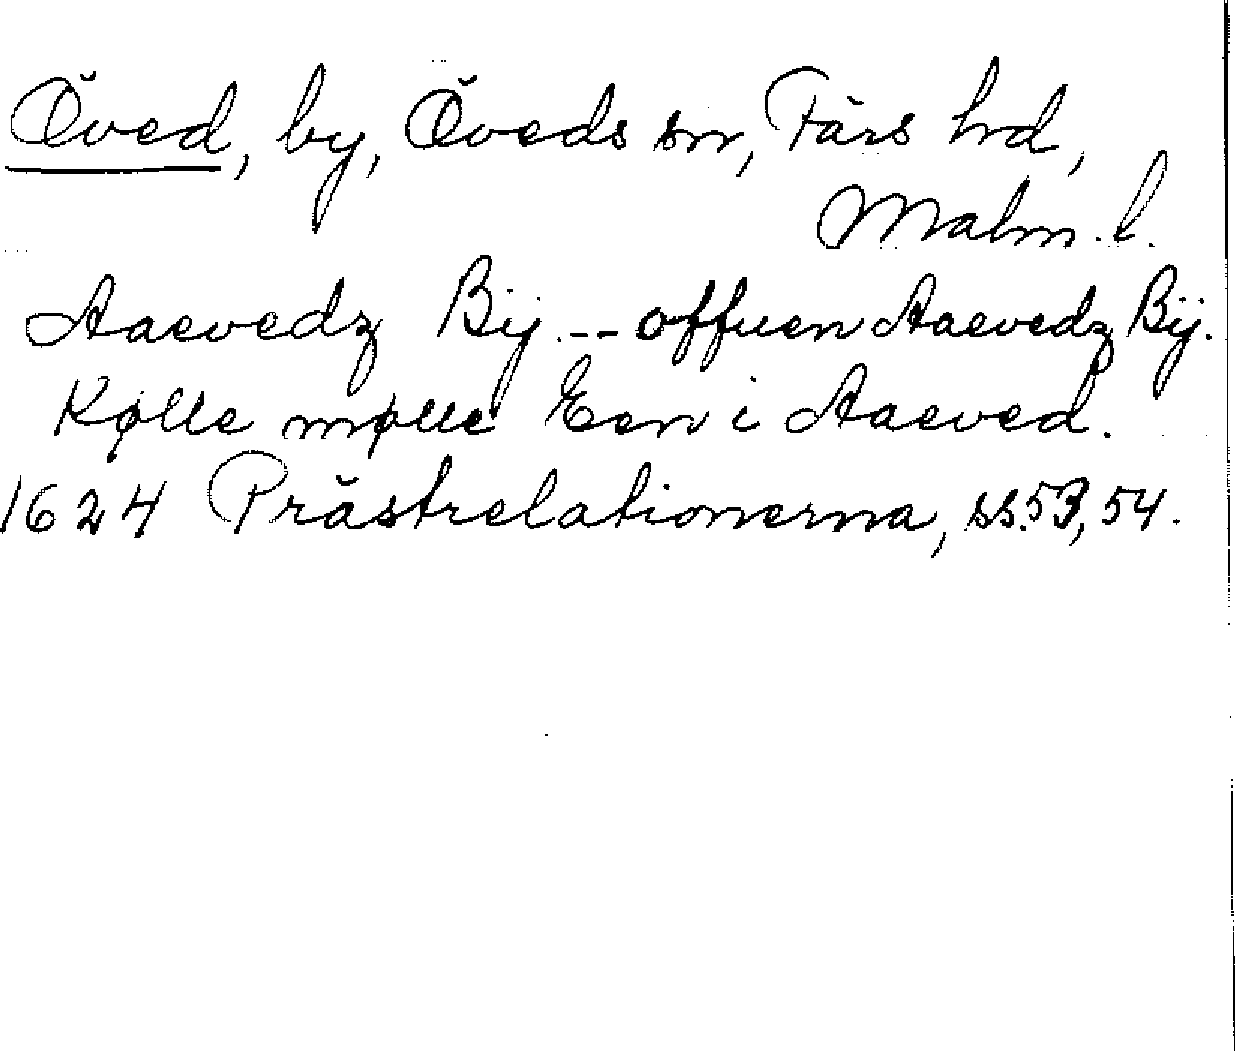 Öved, by, Öveds sn, Färs hd,
Malm. l.
Aaevedz Bÿ. -- offuen Aaevedz Bÿ.
Kølle mølle Een i Aaeved.
1624 Prästrelationerna, ss. 53, 54.